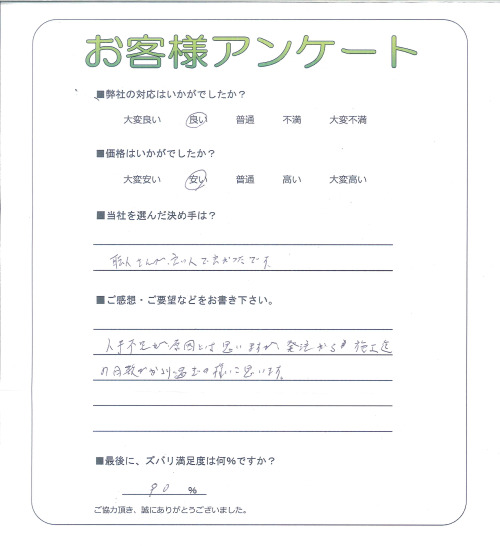 お客様アンケート
■弊社の対応はいかがでしたか？
大変良い 良い 普通 不満 大変不満
■価格はいかがでしたか？
大変安い 安い 普通 高い 大変高い
■当社を選んだ決め手は？
職人さんが、良い人で良かったです。
■ご感想・ご要望などをお書き下さい。
人手不足が原因とは思いますが、発注から施工迄
の日数がかかり過ぎの様に思います。
■最後に、ズバリ満足度は何%ですか？
90 %
ご協力頂き、誠にありがとうございました。